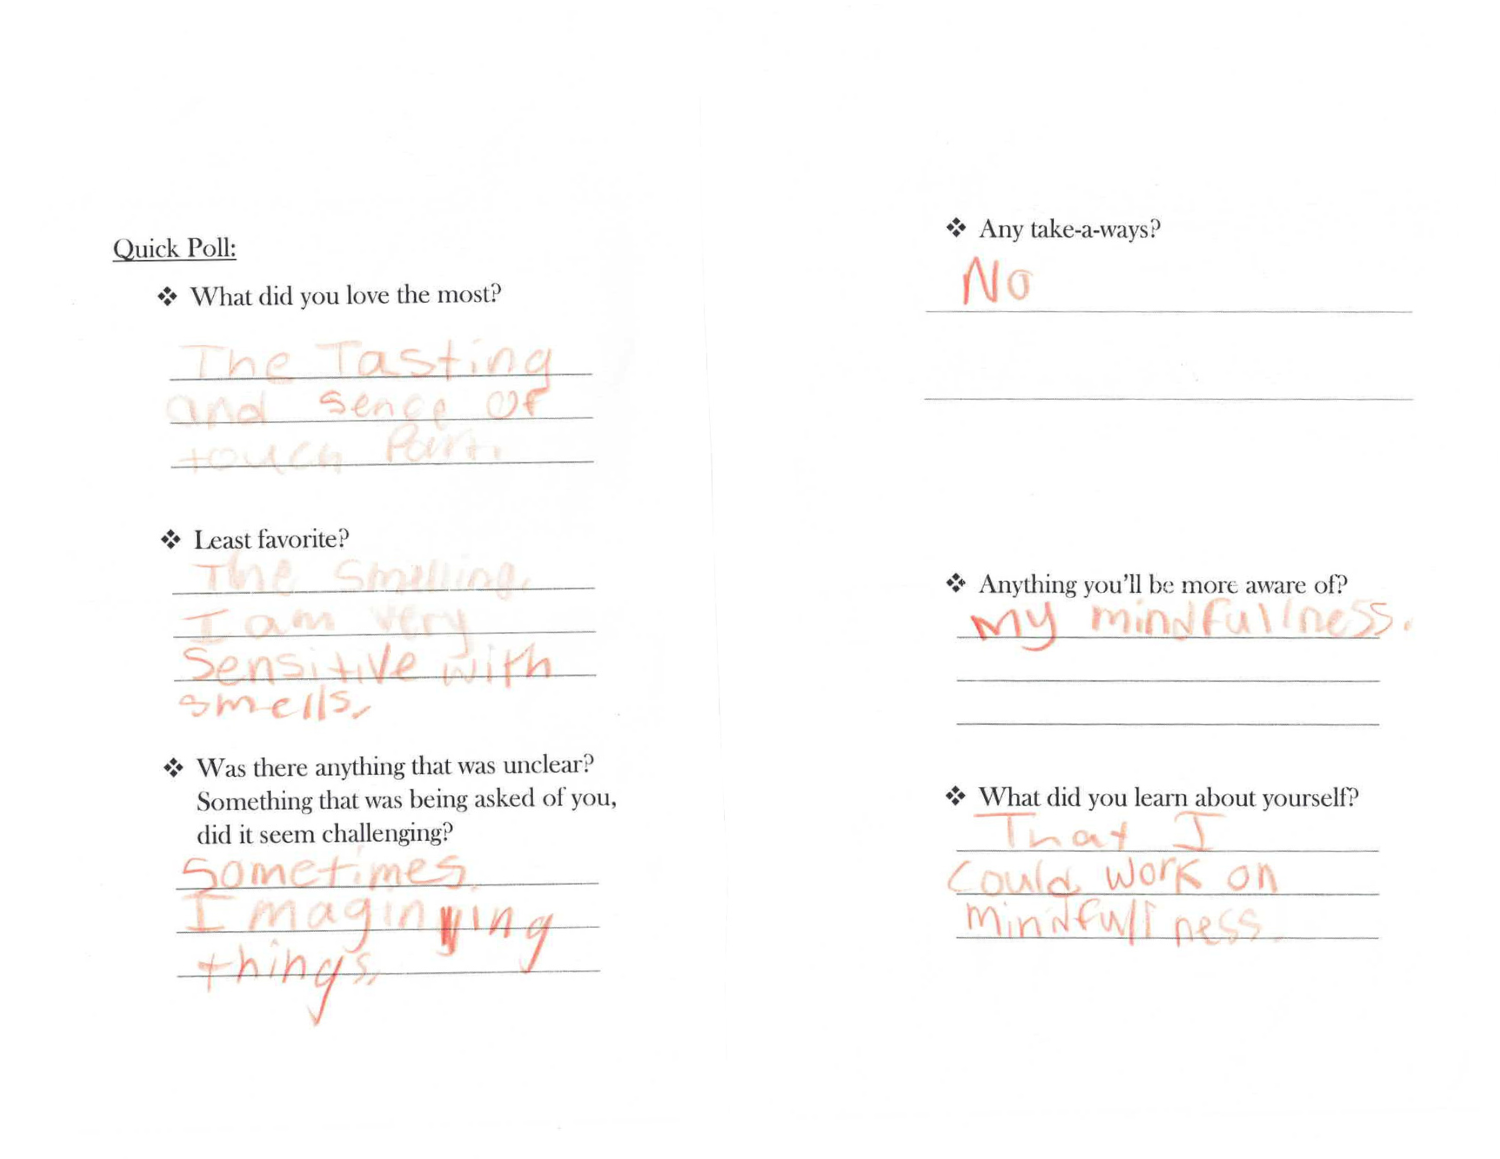 Quick Poll:
❖ What did you love the most?
The Tasting
and sence of
touch Part.
❖ Least favorite?
The Smelling,
I am very
Sensitive with
smells.
❖ Was there anything that was unclear?
Something that was being asked of you,
did it seem challenging?
Sometimes
Imagining
things.
❖ Any take-a-ways?
No
❖ Anything you'll be more aware of?
My mindfullness.
❖ What did you learn about yourself?
That I
Could work on
mindfullness.